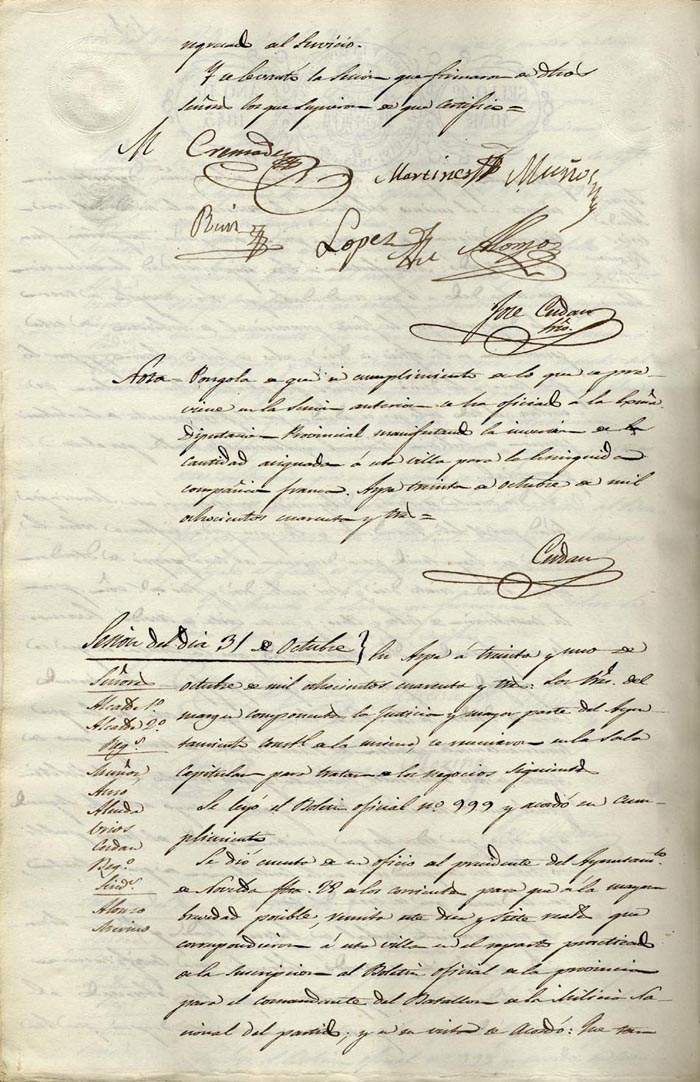 al Servicio.
Y se levantó la Sesion que firmaron de dhos
Señores los que supieron de que certifico =
M Cremades Martinez Muñoz
Ruiz Lopez Alonso
Jose Cerdan
Srio.
Nota = Pongola de que en cumplimiento de lo que se pre
viene en la Sesion anterior se ha oficiado á la Exma.
Diputacion Provincial manifestando la inversion de la
cantidad asignada á esta villa para la extinguida
compañia franca. Aspe treinta de octubre de mil
ochocientos cuarenta y tres =
Cerdan
Sesion del dia 31 de Octubre } En Aspe á treinta y uno de
Señores
octubre de mil ochocientos cuarenta y tres: Los Sres. del
Alcalde 1º
margen componiendo la Justicia y mayor parte del Ayun
Alcalde 2º
tamiento constl. de la misma se reunieron en la Sala
Regs.
Capitular para tratar de los negocios siguientes
Muñoz
Se leyó el Boletin oficial nº 999 y acordó su cum-
Almodo
plimiento
Cerdan
Se dio cuenta de un oficio del presidente del Ayuntamto.
Sinds.
de Novelda fha. 28 de los corrientes para que á la mayor
Alonso
brevedad posible, remita este diez y siete reales que
correspondieron á esta villa en el reparto practicado
de la suscripcion al Boletin oficial de la provincia
para el comandante del Batallon de la Milicia Na-
cional del partido; y en su vista se Acordó: Que